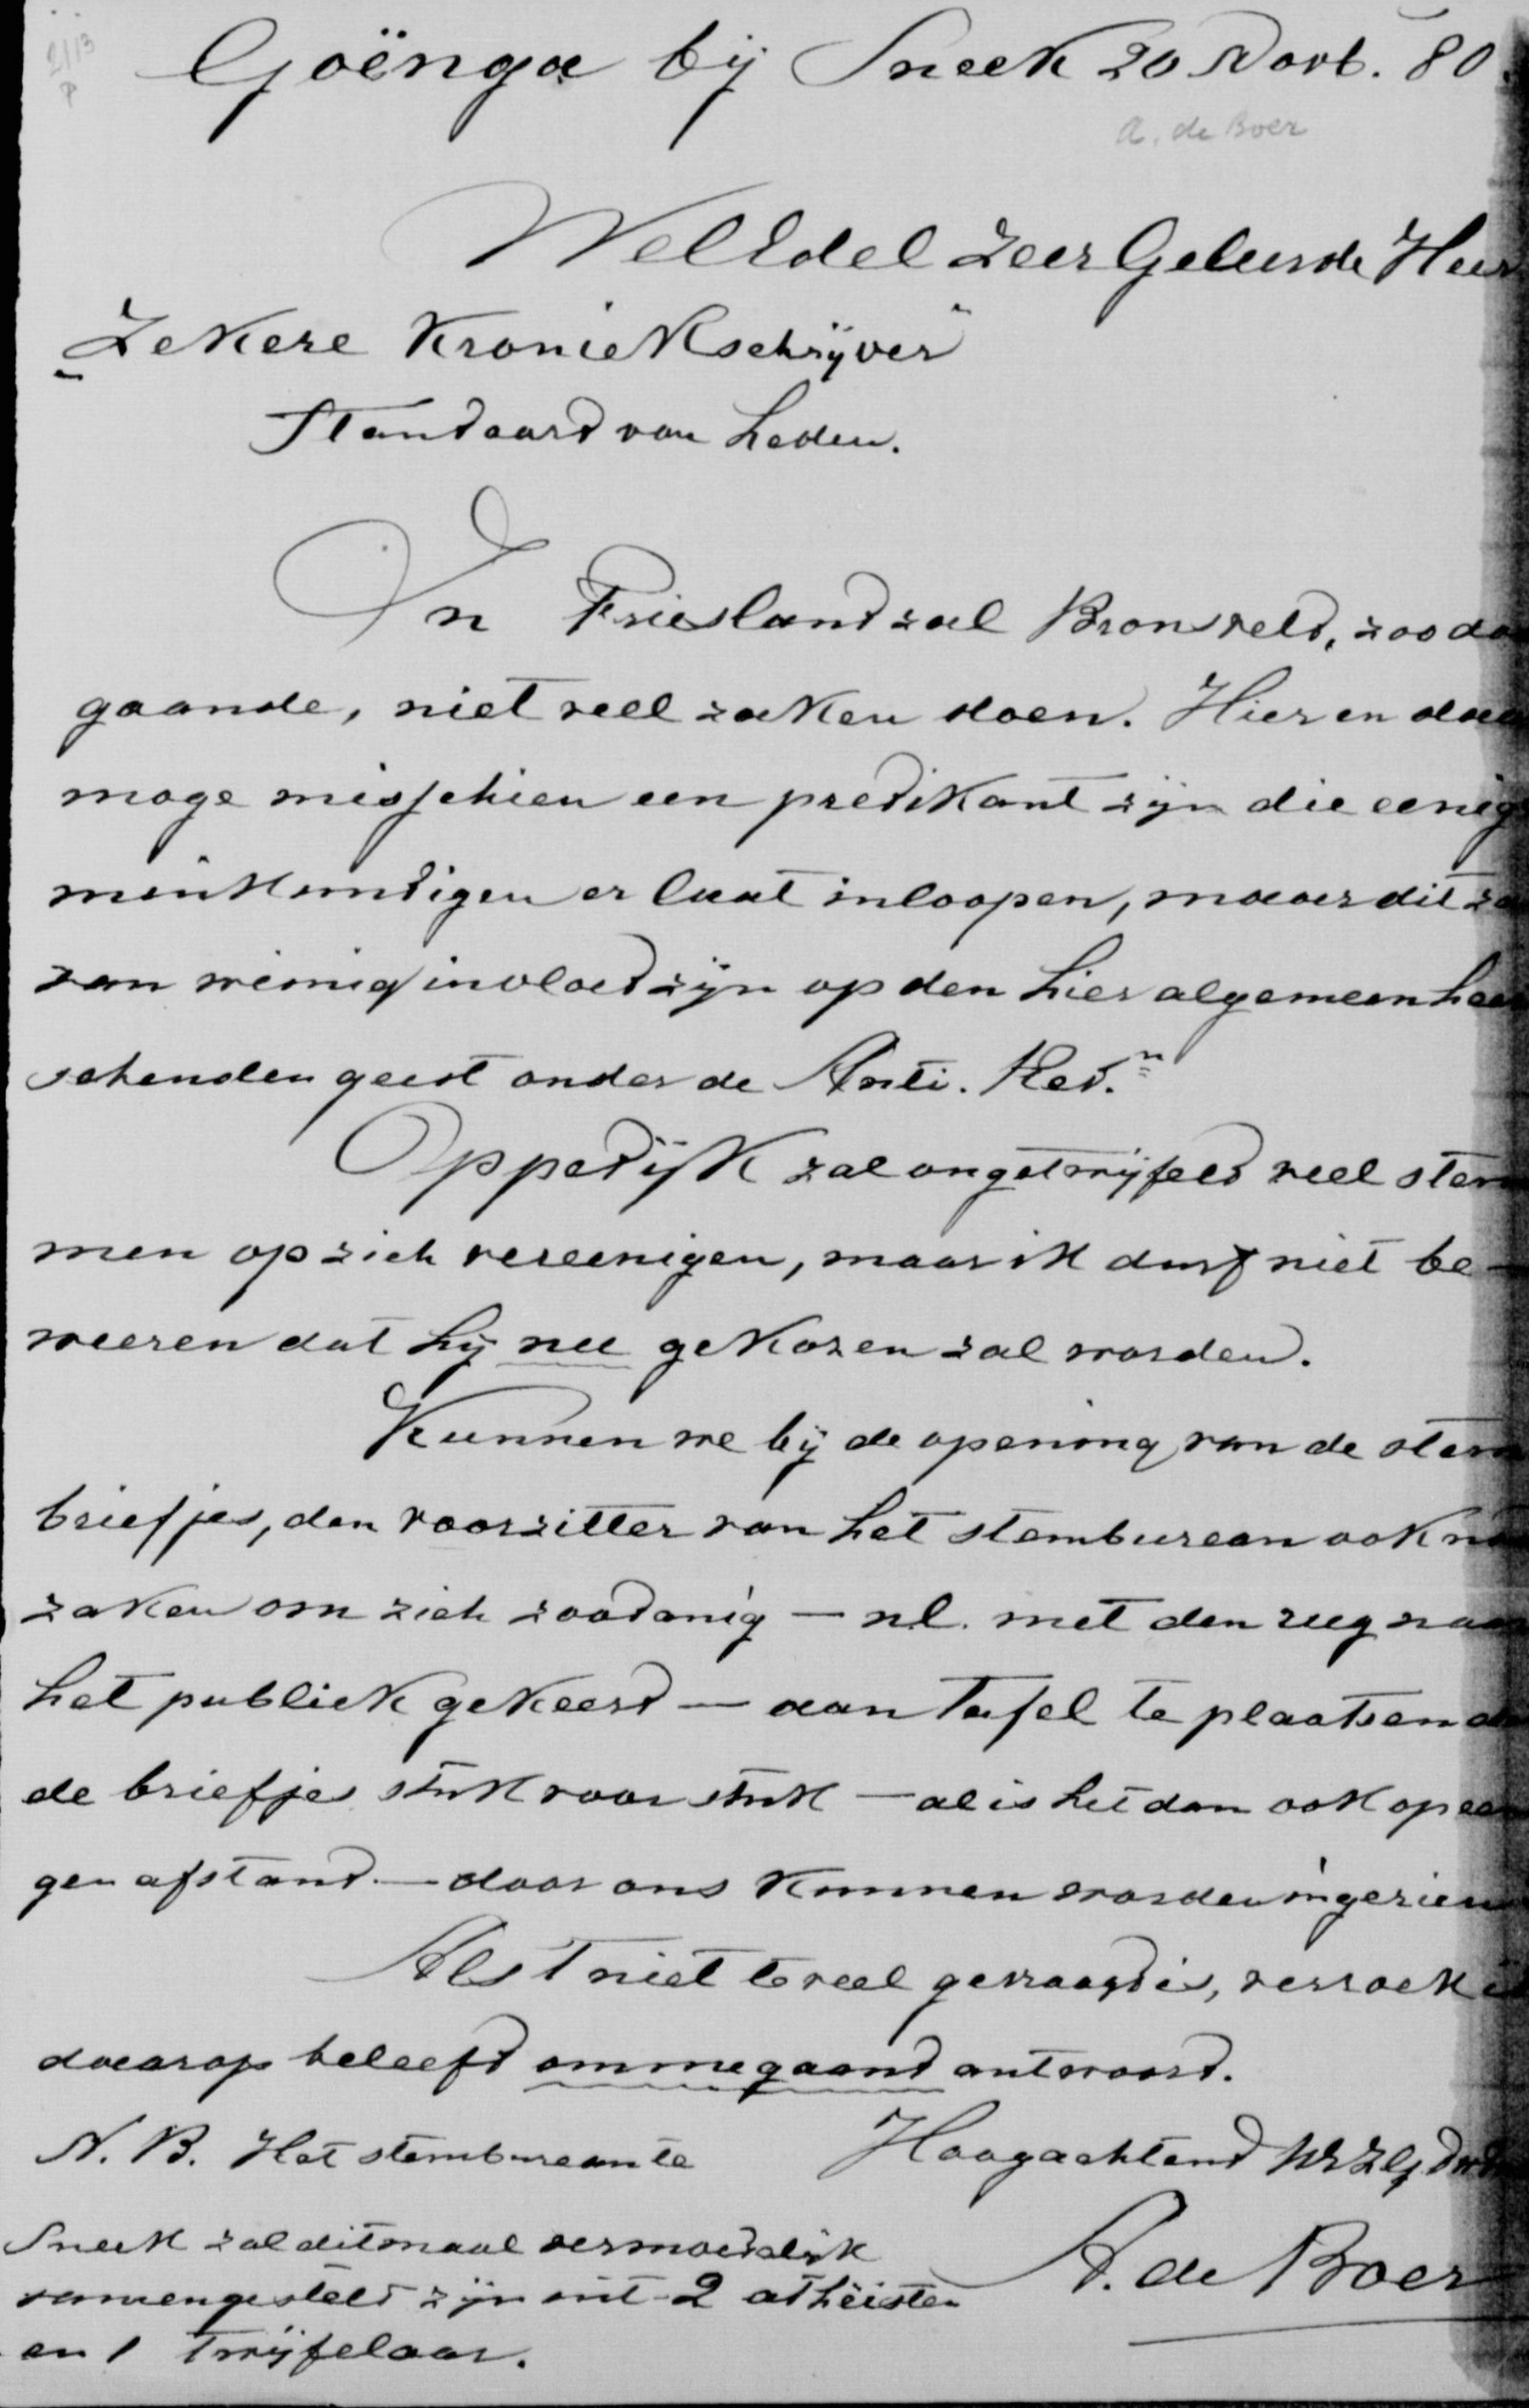 Goënga bij Sneek 20 Novb. 80.
A. de Boer
WelEdel Zeer Geleerde Heer
„Zekere Kroniekschrijver"
Standaard van heden.
In Friesland zal Bronsveld, zoo
gaande, niet veel zaken doen. Hier en daar
moge misschien een predikant zijn die eenig
minkundigen er laat inloopen, maar dit
van weinig invloed zijn op den hier algemeen heer
schenden geest onder de Anti. Rev.n
Oppedijk zal ongetwijfeld veel stem
men op zich vereenigen, maar ik durf niet be-
weeren dat hij nu gekozen zal worden.
Kunnen we bij de opening van de stem
briefjes, den voorzitter van het stembureau ook
zaken om zich zoodanig — nl. met den rug naar
het publiek gekeerd — aan tafel te plaatsen
de briefjes stuk voor stuk — al is het dan ook op
gen afstand. — door ons kunnen worden ingezien
Als 't niet te veel gevraagd is, verzoek
daarop beleefd ommegaand antwoord.
Hoogachtend
A. de Boer
N. B. Het stembureau te
Sneek zal ditmaal vermoedelijk
samengesteld zijn uit 2 atheïsten
en 1 twijfelaar.